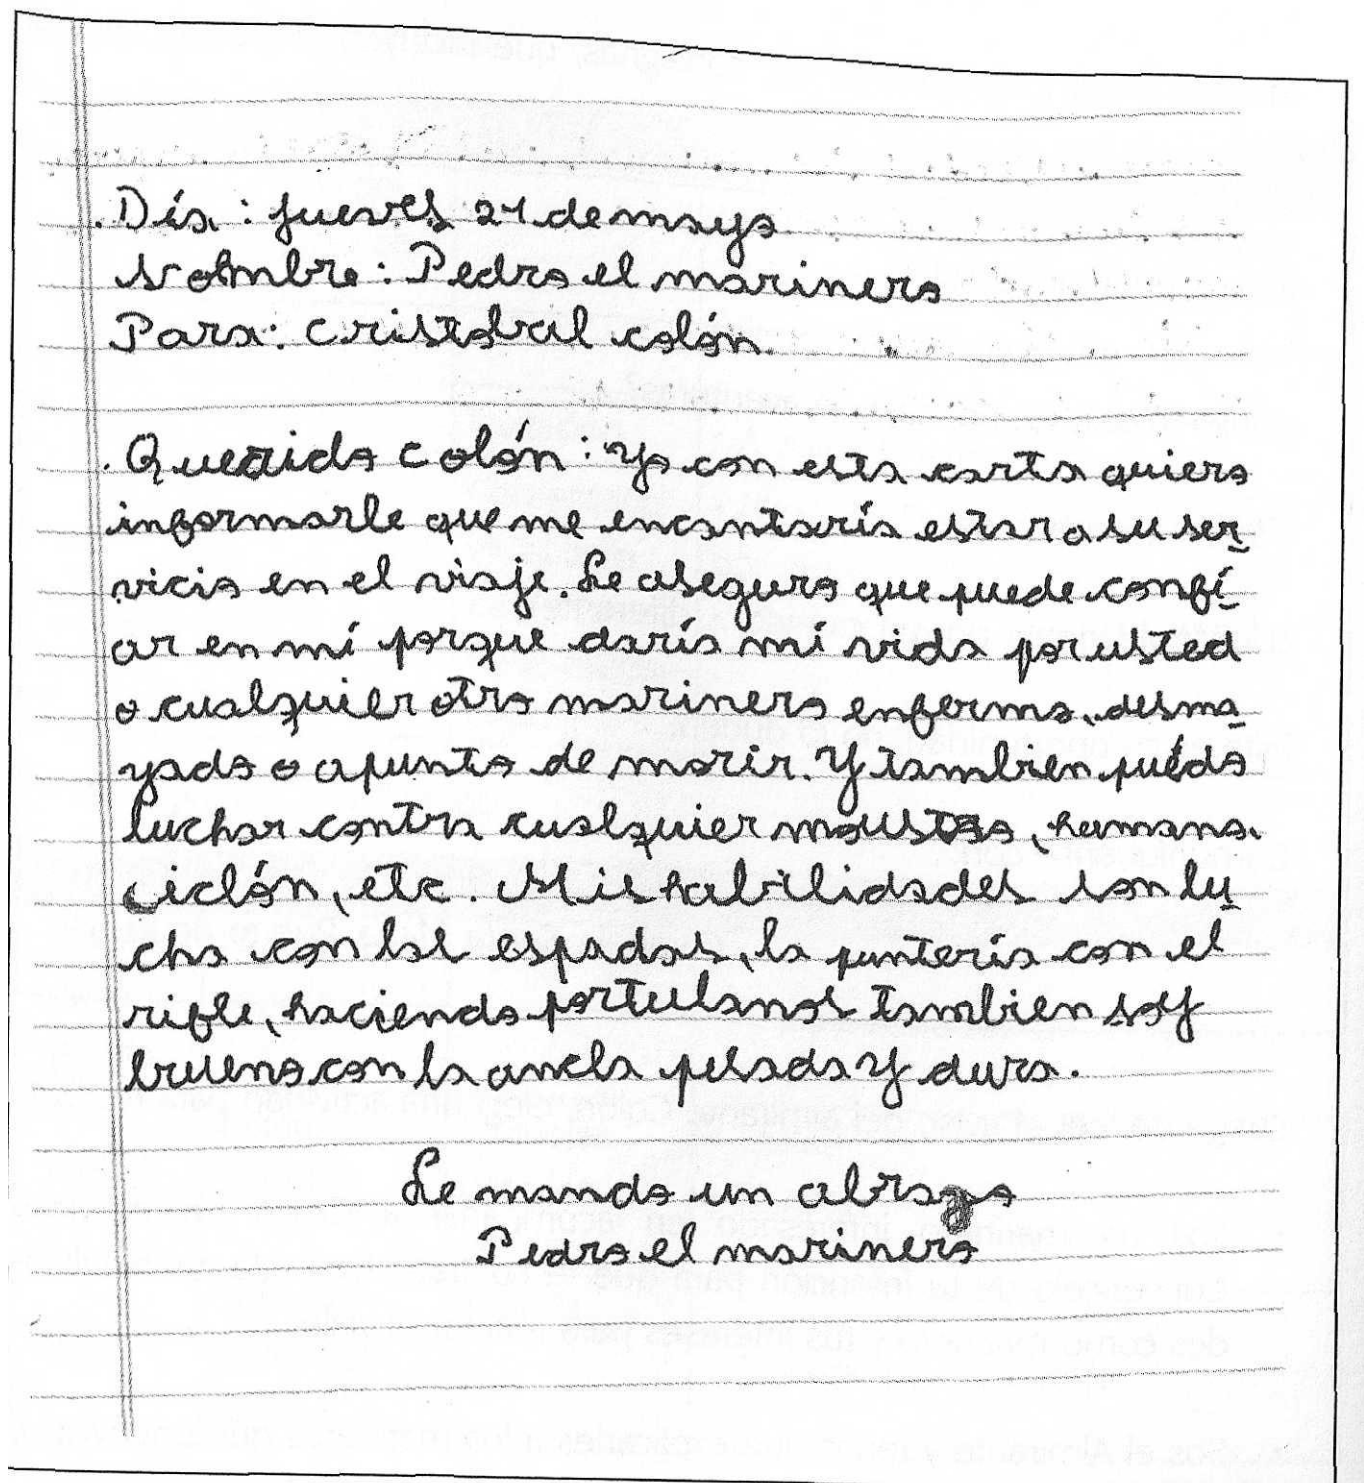 Día: jueves 21 de mayo
Nombre: Pedro el marinero
Para: cristobal colón.
Querido colón: Yo con esta carta quiero
informarle que me encantaría estar a su ser-
vicio en el viaje. Le aseguro que puede confi-
ar en mí porque daría mi vida por usted
o cualquier otro marinero enfermo, desma-
yado o apunto de morir. Y tambien puedo
luchar contra cualquier moustro, humano,
ciclón, etc. Mis habilidades son lu-
cha con las espadas, la puntería con el
rifle, haciendo portulanos tambien soy
bueno con la ancla pesada y dura.
Le mando un abrazo
Pedro el marinero